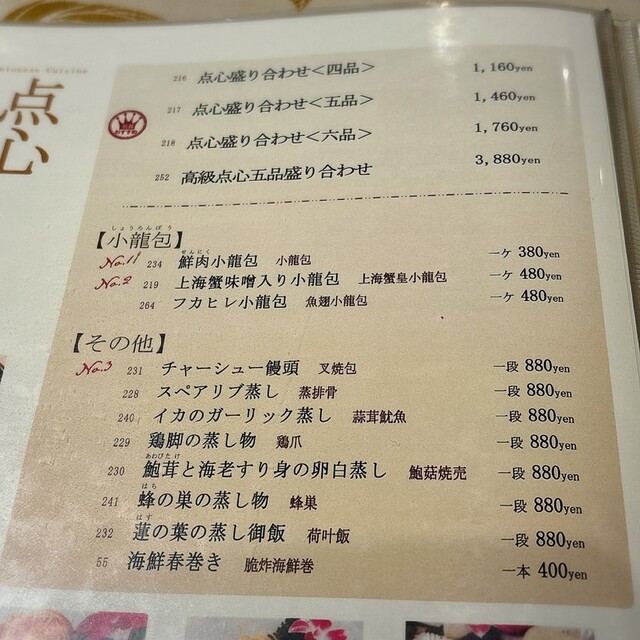 Cuisine
点心
216 点心盛り合わせ<四品> 1,160yen
217 点心盛り合わせ<五品> 1,460yen
おすすめ
218 点心盛り合わせ<六品> 1,760yen
252 高級点心五品盛り合わせ 3,880yen
しょうろんぽう
【小龍包】
せんにく
No.1! 234 鮮肉小龍包 小龍包 一ケ 380yen
No.2 219 上海蟹味噌入り小龍包 上海蟹皇小龍包 一ケ 480yen
264 フカヒレ小龍包 魚翅小龍包 一ケ 480yen
【その他】
No.3 231 チャーシュー饅頭 叉焼包 一段 880yen
228 スペアリブ蒸し 蒸排骨 一段 880yen
240 イカのガーリック蒸し 蒜茸魷魚 一段 880yen
229 鶏脚の蒸し物 鶏爪 一段 880yen
あわびたけ
230 鮑茸と海老すり身の卵白蒸し 鮑菇焼売 一段 880yen
はち
241 蜂の巣の蒸し物 蜂巣 一段 880yen
はす
232 蓮の葉の蒸し御飯 荷叶飯 一段 880yen
55 海鮮春巻き 脆炸海鮮巻 一本 400yen